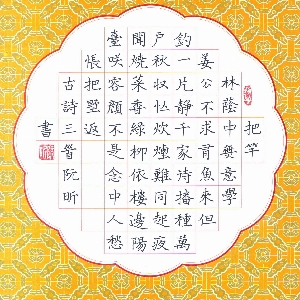 把竿
林蔭中興意學
姜公不求肯魚來但
釣一片靜千家待播種萬
户秋収怙炊煙難问起疲
聞燒菜香綠柳依樓邊陽
臺咲容顏不是念中人愁
悵把題返
古詩三首阮昕
書